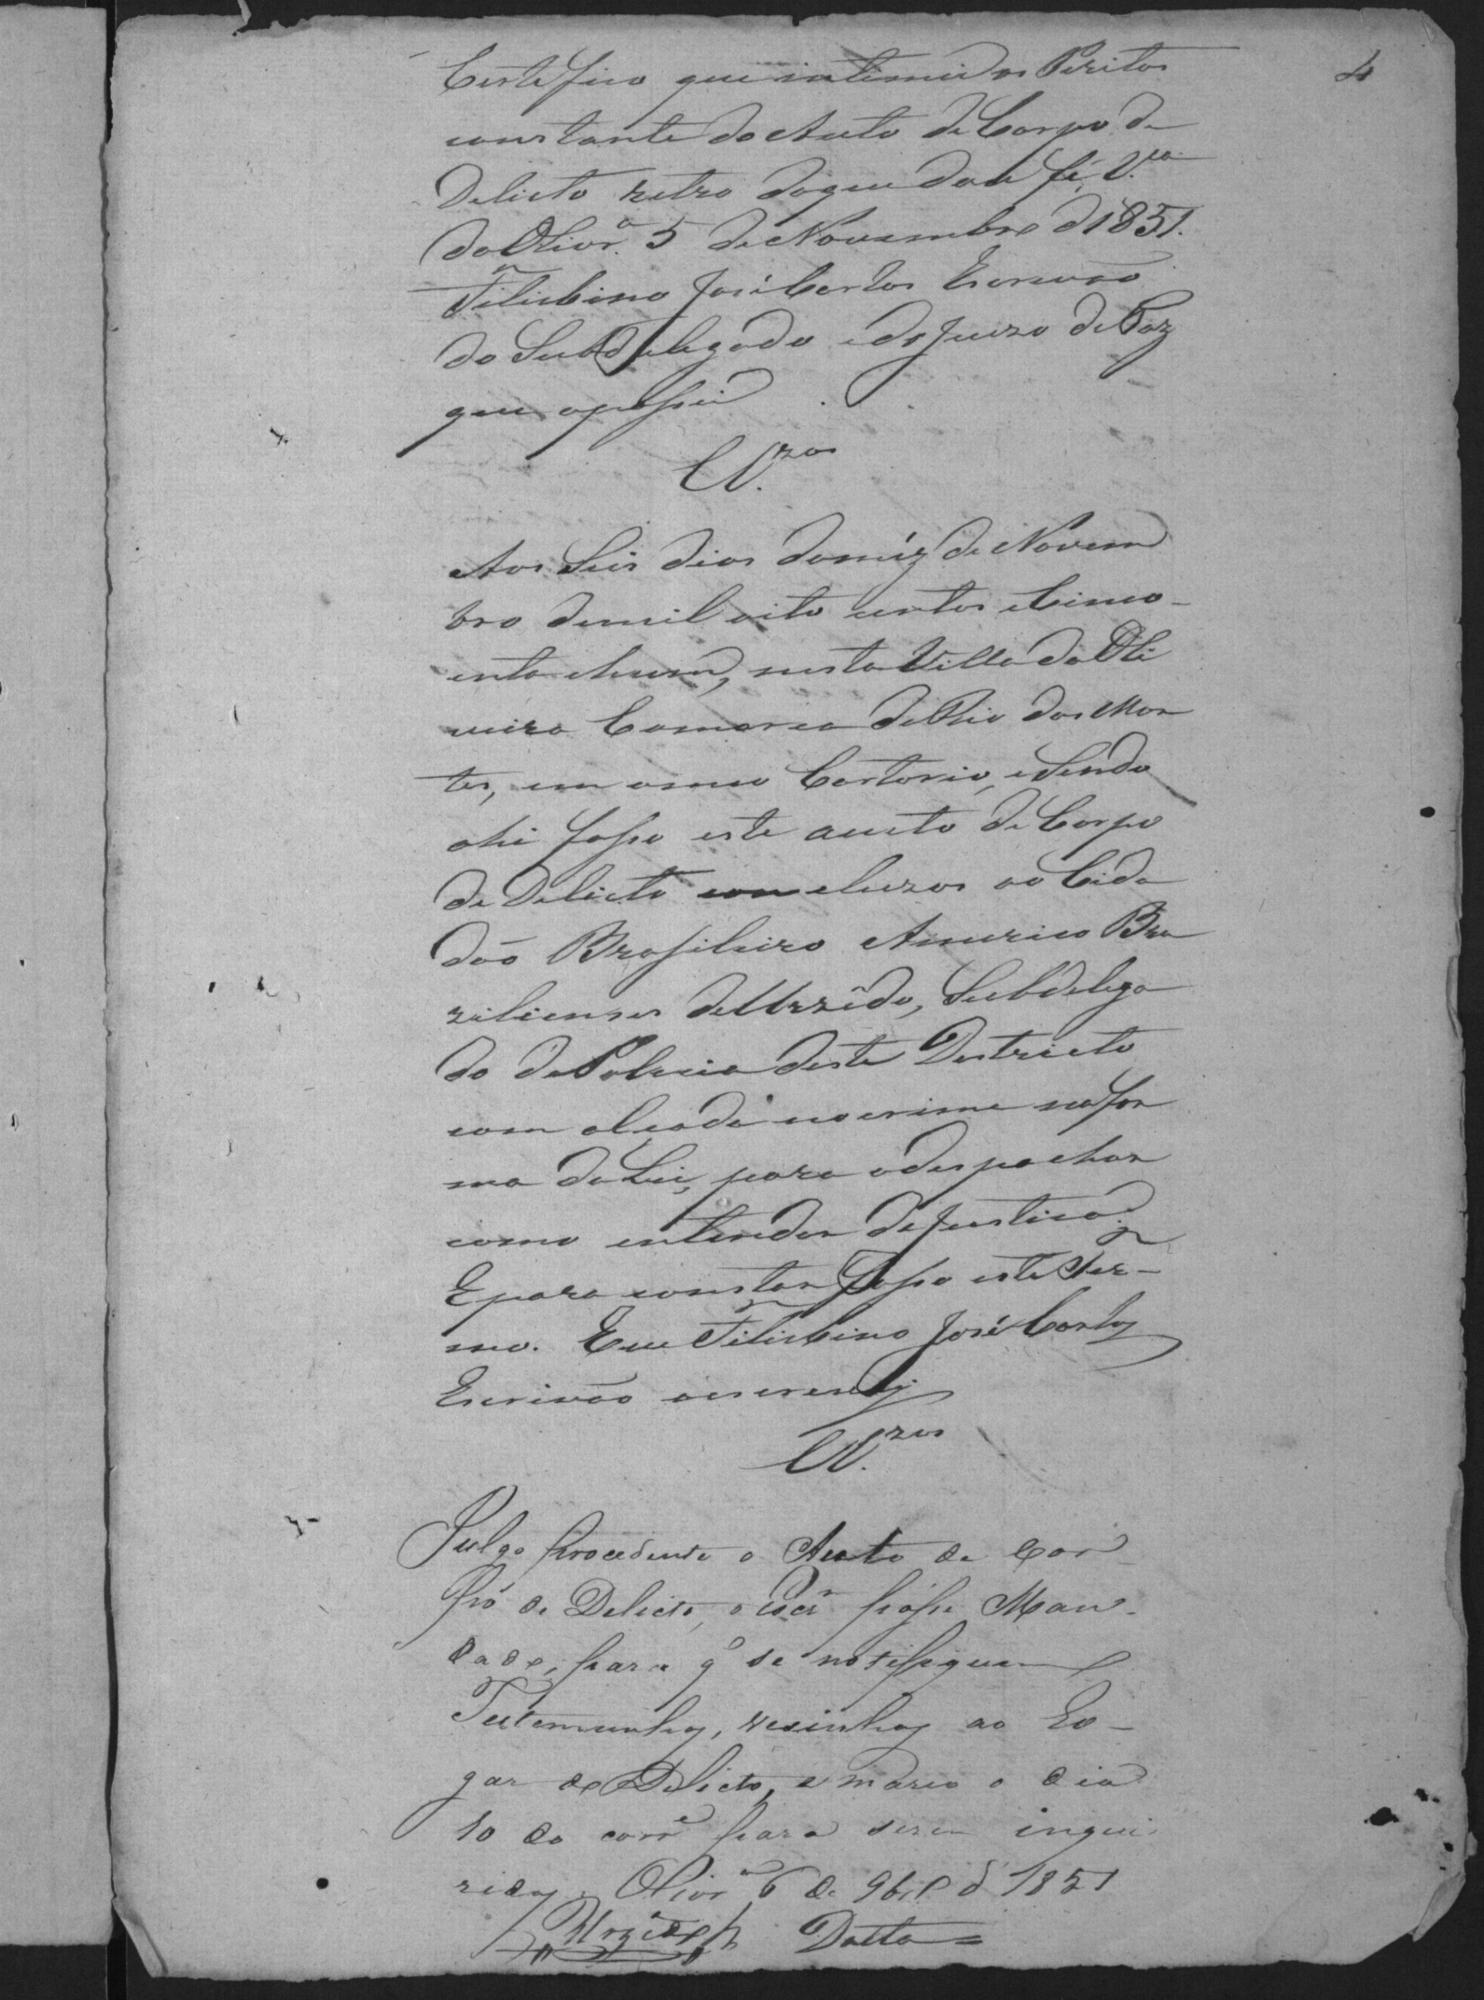 4
Certefico que intimei os Peritos
constante do Auto de Corpo de
Delicto retro do que dou fé, V.ª
da Olivr.ª 5 de Novembro d 1851.
Felisbino José Carlos Escrivão
do Subdelegado e do Juizo de Paz
que o passei
Cl.zos
Aos Seis dias do mez de Novem
bro de mil oito centos e Cinco-
enta e hum, nesta Villa da Oli
veira Comarca do Rio das Mor
tes, em o meu Cartorio, e Sendo
ahi faço este aucto de Corpo
de Delicto concluzos ao Cida
dão Brasileiro Americo Bra
ziliense de Urzêdo, Subdelega
do de Policia deste Destricto
com alçada no crime na for
ma da Lei, para o despachar
como entender de justica.
E para constar faço este Ter-
mo. Eu Felisbino José Carlos
Escrivão o escrevy
Cl.zos
Julgo procedente o Auto de Cor
pó de Delicto, o Escr.m passe Man-
dado, para q' se notifiquem
Testemunhas, vesinhas ao Lo-
gar do Delicto, e marco o dia
10 do corr.e para serem inqui
ridas. Olivr.ª 6 de 9br.o d 1851
Urzêdo
Datta =